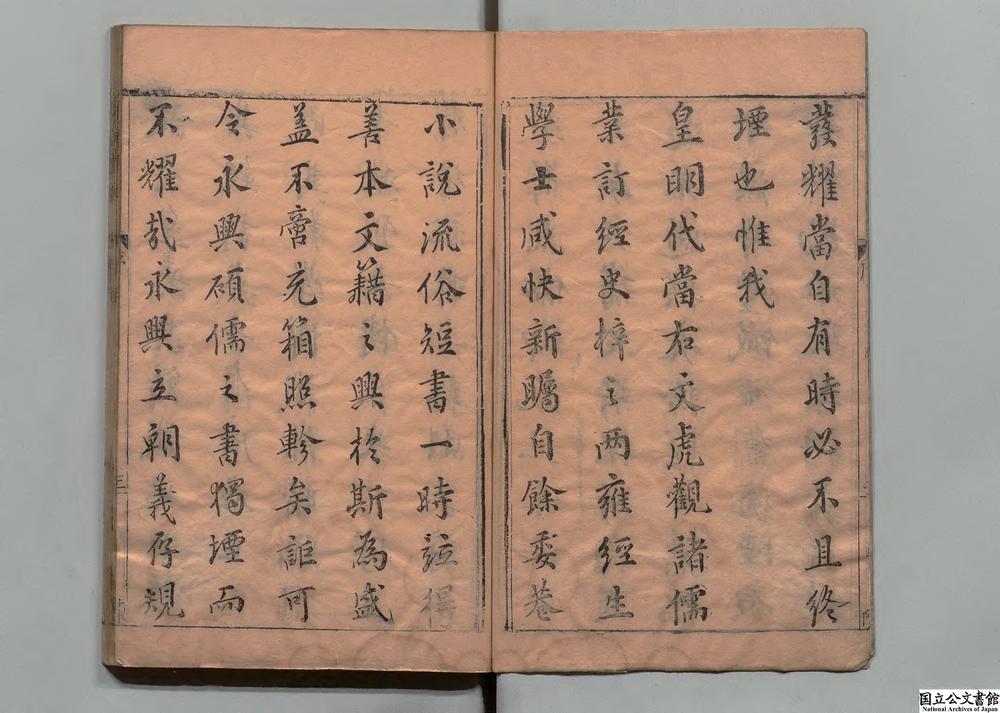 發耀當自有時必不且終
堙也惟我
皇明代當右文虎觀諸儒
業訂經史梓之两雍經生
學士咸快新矚自餘委巷
小說流俗短書一時竝得
善本文籍之興於斯為盛
蓋不啻充箱照軫矣詎可
令永興碩儒之書獨堙而
不耀哉永興立朝義存規
国立公文書館
National Archives of Japan